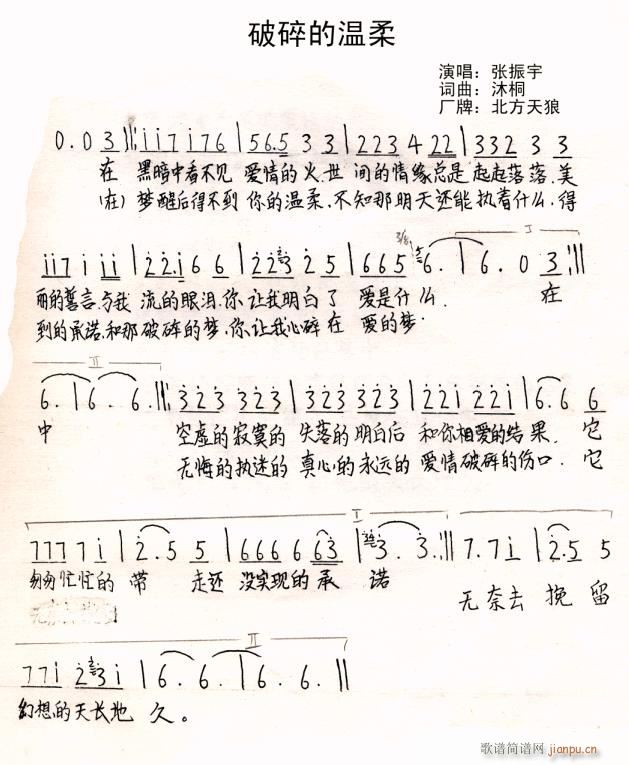 破碎的温柔
演唱：张振宇
词曲：沐桐
厂牌：北方天狼
0. 0 3 ‖: i i 7 i 7 6 | 5 6. 5 3 3 | 2 2 3 4 2 2 | 3 3 2 3 3
在 黑暗中看不见 爱情的火.世 间的情缘总是 起起落落.美
(在) 梦醒后得不到 你的温柔.不知那明天还能执着什么.得
i i 7 i i i | 2 2. i 6 6 | 2 2 3 2 5 | 6 6 5 6. | 6. 0 3 :‖
I
丽的誓言.与我 流的眼泪.你.让我明白了 爱是什么. 在
到的承诺.和那破碎的梦.你.让我心碎在 爱的梦.
II
6. | 6. 6. ‖: 3 2 3 3 2 3 | 3 2 3 3 2 3 | 2 2 i 2 2 i | 6. 6 6
中 空虚的寂寞的 失落的明白后 和你相爱的结果. 它
无悔的执迷的 真心的永远的 爱情破碎的伤口. 它
I
7 7 7 7 i | 2. 5 5 | 6 6 6 6 6 3 | 3. 3. :‖ 7. 7 i | 2. 5 5
匆匆忙忙的 带 走还 没实现的承 诺 无奈去 挽 留
II
7 7 i 2 3 i | 6. 6. | 6. 6. ‖
幻想的天长地 久。
歌谱简谱网 jianpu.cn